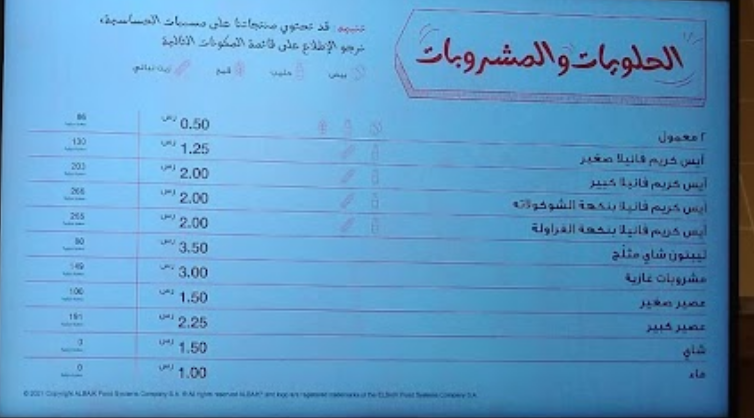 الحلويات والمشروبات
تنبيه: قد تحتوي منتجاتنا على مسببات الحساسية،
نرجو الإطلاع على قائمة المكونات التالية
بيض حليب قمح زيت نباتي
٢ معمول 0.50 ر.س 86
آيس كريم فانيلا صغير 1.25 ر.س 130
آيس كريم فانيلا كبير 2.00 ر.س 203
آيس كريم فانيلا بنكهة الشوكولاته 2.00 ر.س 266
آيس كريم فانيلا بنكهة الفراولة 2.00 ر.س 265
ليبتون شاي مثلّج 3.50 ر.س 90
مشروبات غازية 3.00 ر.س 149
عصير صغير 1.50 ر.س 100
عصير كبير 2.25 ر.س 191
شاي 1.50 ر.س 0
ماء 1.00 ر.س 0
© 2021 Copyright ALBAIK Food Systems Company S.A. ® All rights reserved ALBAIK® and logo are registered trademarks of the ALBAIK Food Systems Company S.A.